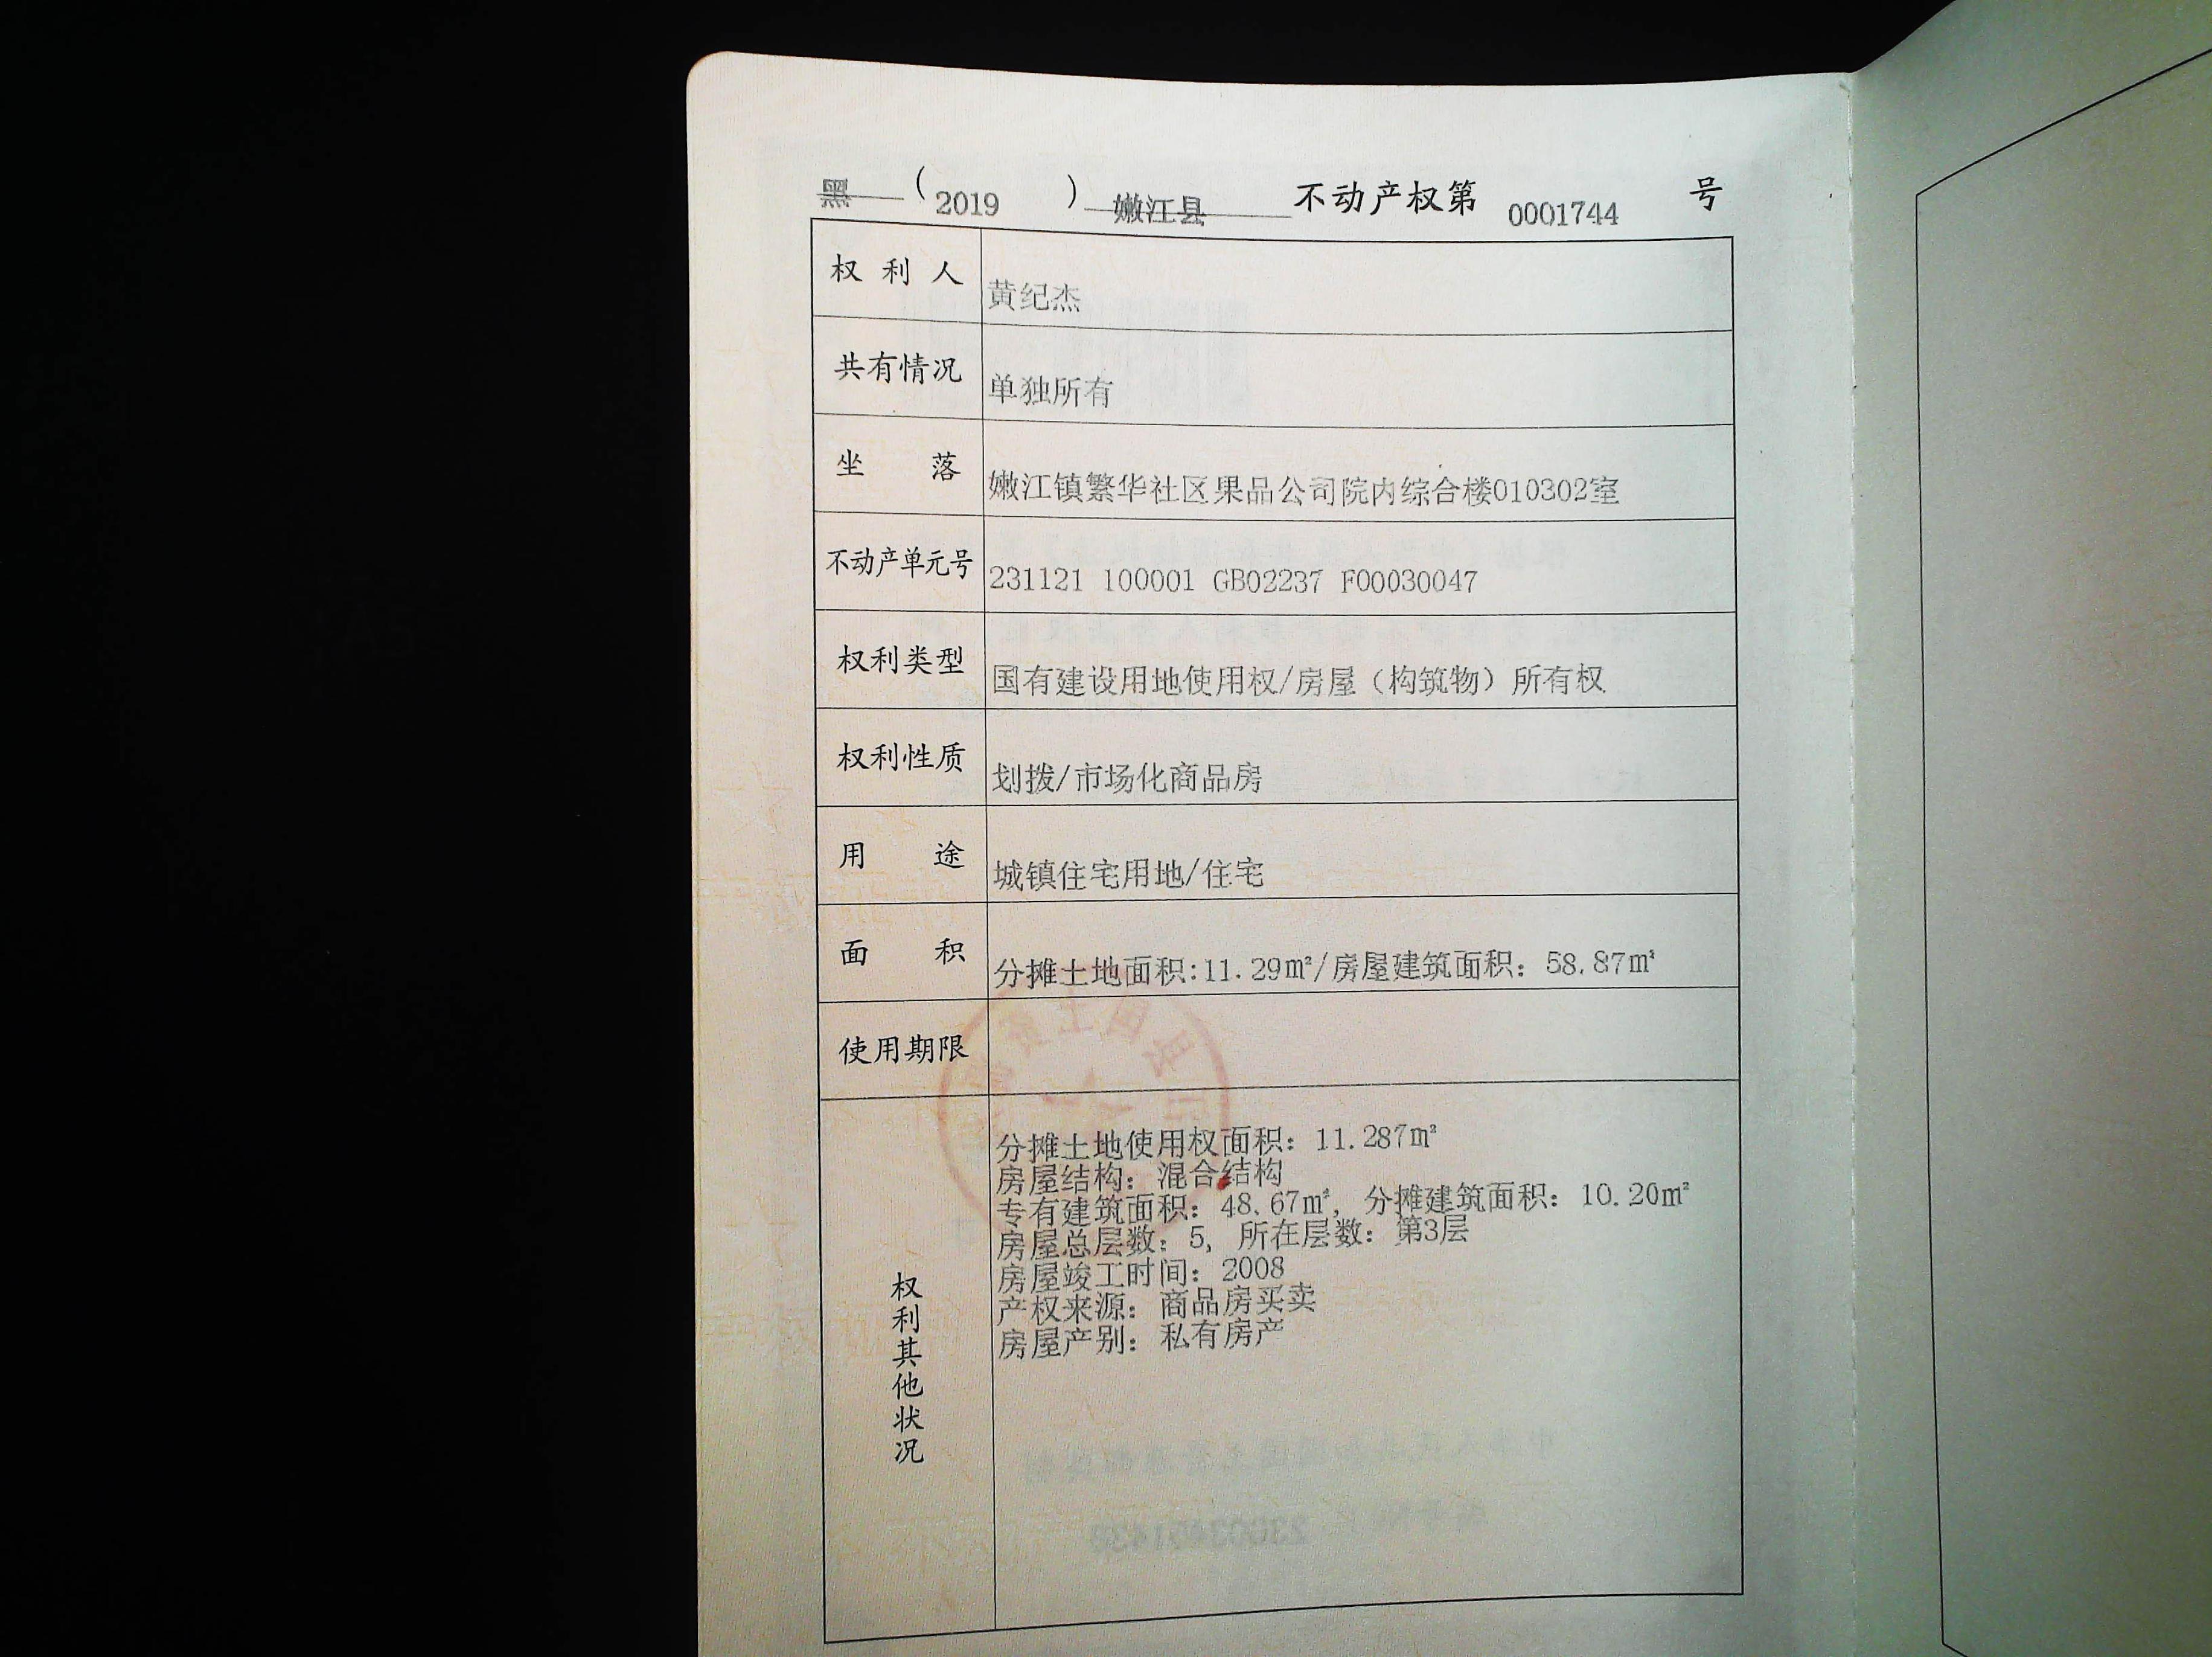 黑（2019）嫩江县不动产权第0001744号
权利人 黄纪杰
共有情况 单独所有
坐落 嫩江镇繁华社区果品公司院内综合楼010302室
不动产单元号 231121 100001 GB02237 F00030047
权利类型 国有建设用地使用权/房屋（构筑物）所有权
权利性质 划拨/市场化商品房
用途 城镇住宅用地/住宅
面积 分摊土地面积:11.29㎡/房屋建筑面积：58.87㎡
使用期限
权利其他状况
分摊土地使用权面积：11.287㎡
房屋结构：混合结构
专有建筑面积：48.67㎡，分摊建筑面积：10.20㎡
房屋总层数：5，所在层数：第3层
房屋竣工时间：2008
产权来源：商品房买卖
房屋产别：私有房产